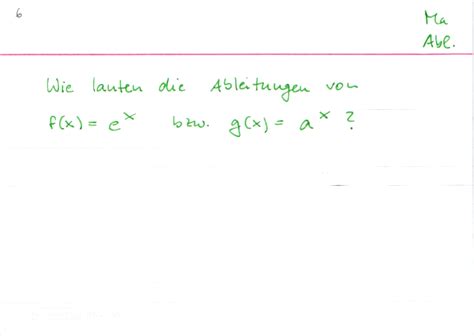 6
Ma
Abl.
Wie lauten die Ableitungen von
f(x) = eˣ bzw. g(x) = aˣ ?